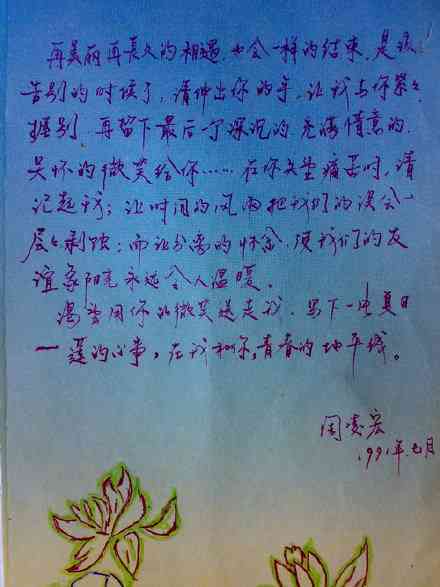 再美丽再长久的相遇,也会一样的结束,是该
告别的时候了,请伸出你的手,让我与你紧紧
握别,再留下最后一个深沉的充满情意的,
关怀的微笑给你……在你失望痛苦时,请
记起我;让时间的风雨把我们的误会一
层层剥蚀;而让分离的怀念,使我们的友
谊象阳光永远令人温暖。
渴望用你的微笑送走我,写下一串夏日
一逗的小事,在我和你,青春的地平线。
周凌宏
1991年七月